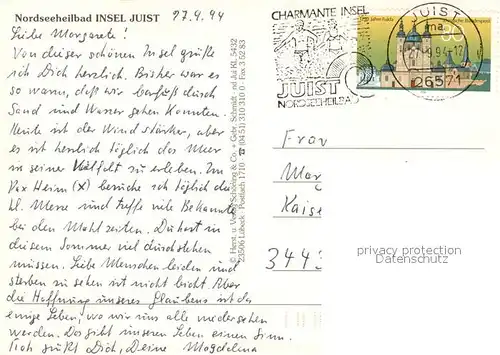 Nordseeheilbad INSEL JUIST
27.9.94
Liebe Margarete!
Von dieser schönen Insel grüße
ich Dich herzlich. Bisher war es
so warm, daß wir barfuß durch
Sand und Wasser gehen konnten.
Heute ist der Wind stärker, aber
es ist herrlich täglich das Meer
in seiner Vielfalt zu erleben. Im
Pax Heim (X) besuche ich täglich die
hl. Messe und treffe viele Bekannte
bei den Mahlzeiten. Du hast in
diesem Sommer viel durchstehen
müssen. Liebe Menschen leiden und
sterben zu sehen ist nicht leicht. Aber
die Hoffnung unseres Glaubens ist das
ewige Leben, wo wir uns alle wiedersehen
werden. Das gibt unserem Leben einen Sinn.
Ich grüßt Dich, Deine Magdalena
© Herst. u. Verlag Schöning & Co. + Gebr. Schmidt · nd Jui Kl. 5432
23506 Lübeck · Postfach 1710 · ☎ (0451) 310310 · Fax 35283
CHARMANTE INSEL
JUIST
NORDSEEHEILBAD
JUIST
ma
26571
80
Frau
Mar
Kaise
3443
privacy protection
AKPOOL.DE